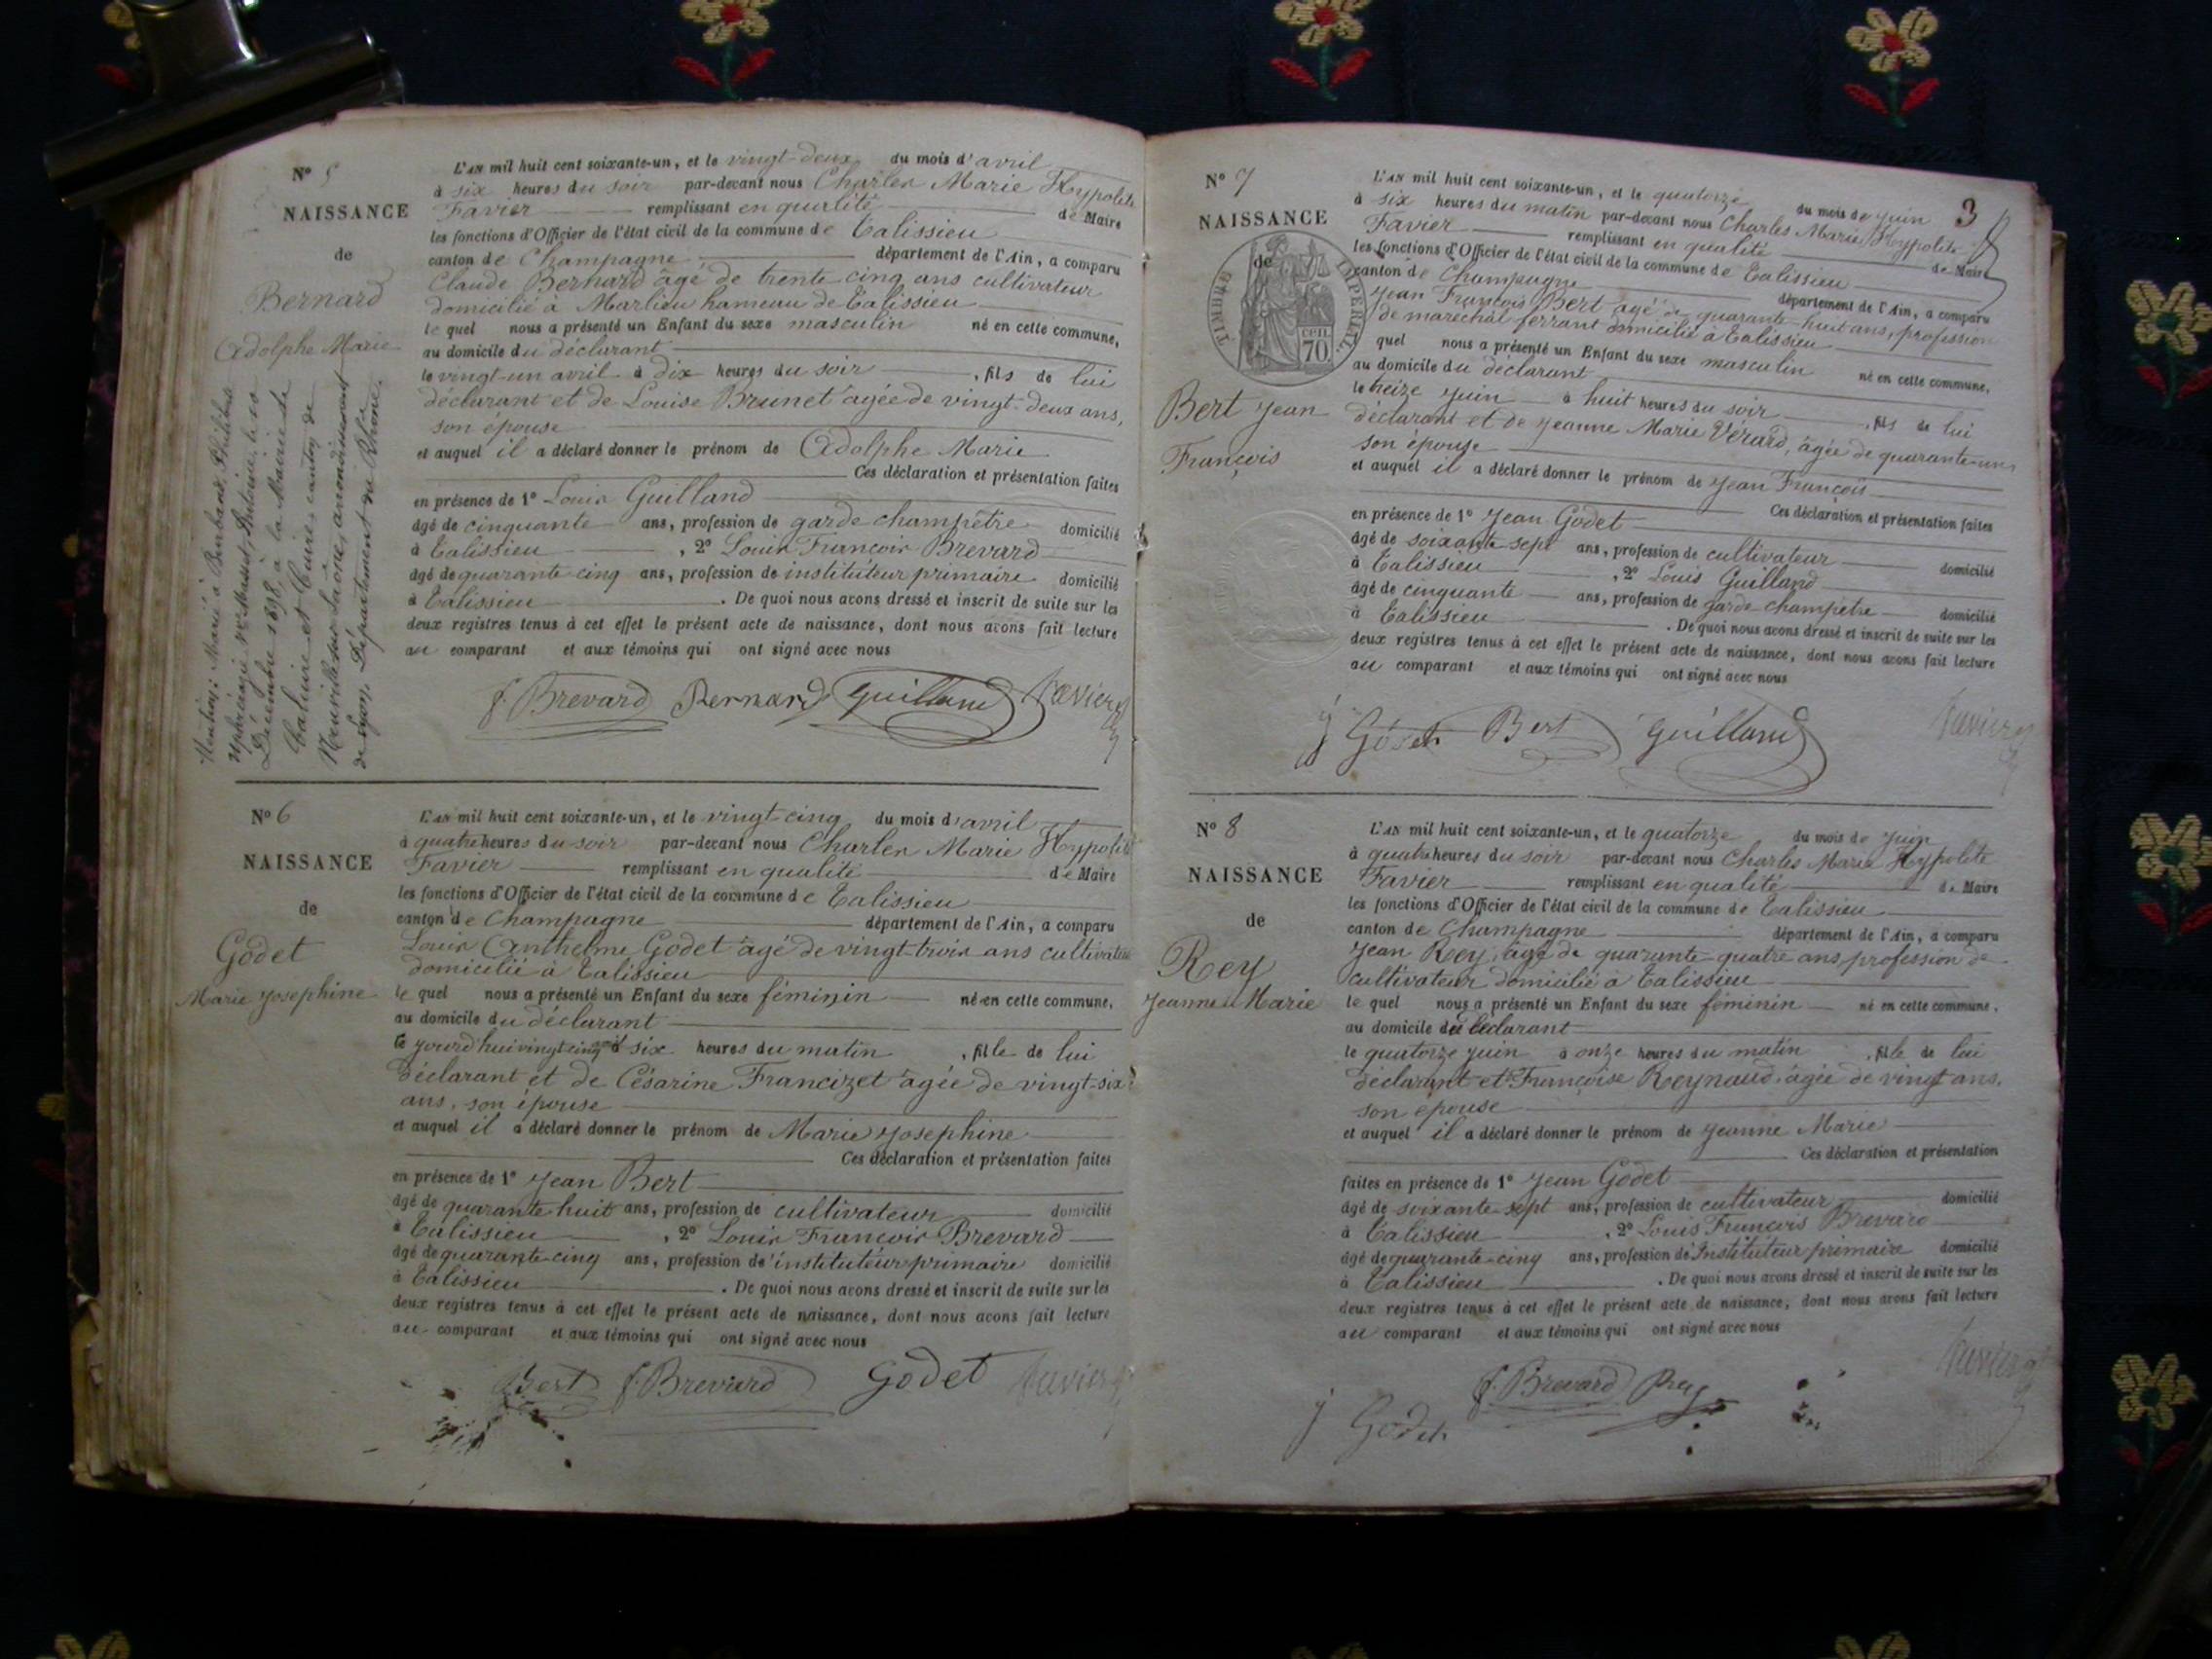 N° 5
NAISSANCE
de
Bernard
Adolphe Marie
L'AN mil huit cent soixante-un, et le vingt-deux du mois d'avril
à six heures du soir par-devant nous Charles Marie Hypolite
Favier remplissant en qualité de Maire
les fonctions d'Officier de l'état civil de la commune de Talissieu
canton de Champagne département de l'Ain, a comparu
Claude Bernard âgé de trente cinq ans cultivateur
domicilié à Marlieu hameau de Talissieu
le quel nous a présenté un Enfant du sexe masculin né en cette commune,
au domicile du déclarant
le vingt-un avril à dix heures du soir, fils de lui
déclarant et de Louise Brunet âgée de vingt-deux ans,
son épouse
et auquel il a déclaré donner le prénom de Adolphe Marie
Ces déclaration et présentation faites
en présence de 1° Louis Guilland
âgé de cinquante ans, profession de garde champêtre domicilié
à Talissieu, 2° Louis François Brevard
âgé de quarante cinq ans, profession de instituteur primaire domicilié
à Talissieu. De quoi nous avons dressé et inscrit de suite sur les
deux registres tenus à cet effet le présent acte de naissance, dont nous avons fait lecture
au comparant et aux témoins qui ont signé avec nous
f. Brevard Bernard Guilland Favier
Mention: Marié à Burbaud, Philiberte
Décembre 1898, à la Mairie de
Caluire et Cuire, canton de
Neuville sur Saône, arrondissement
de Lyon, Département du Rhône.
N° 6
NAISSANCE
de
Godet
Marie Josephine
L'AN mil huit cent soixante-un, et le vingt-cinq du mois d'avril
à quatre heures du soir par-devant nous Charles Marie Hypolite
Favier remplissant en qualité de Maire
les fonctions d'Officier de l'état civil de la commune de Talissieu
canton de Champagne département de l'Ain, a comparu
Louis Anthelme Godet âgé de vingt-trois ans cultivateur
domicilié à Talissieu
le quel nous a présenté un Enfant du sexe féminin né en cette commune,
au domicile du déclarant
le jourd'hui vingt cinq avril à six heures du matin, fille de lui
déclarant et de Césarine Francizet âgée de vingt-six
ans, son épouse
et auquel il a déclaré donner le prénom de Marie Josephine
Ces déclaration et présentation faites
en présence de 1° Jean Bert
âgé de quarante-huit ans, profession de cultivateur domicilié
à Talissieu, 2° Louis François Brevard
âgé de quarante-cinq ans, profession de instituteur primaire domicilié
à Talissieu. De quoi nous avons dressé et inscrit de suite sur les
deux registres tenus à cet effet le présent acte de naissance, dont nous avons fait lecture
au comparant et aux témoins qui ont signé avec nous
Bert f. Brevard Godet Favier
3
N° 7
NAISSANCE
de
TIMBRE IMPERIAL
CEN.
70
Bert Jean
François
L'AN mil huit cent soixante-un, et le quatorze du mois de juin
à six heures du matin par-devant nous Charles Marie Hypolite
Favier remplissant en qualité de Maire
les fonctions d'Officier de l'état civil de la commune de Talissieu
canton de Champagne département de l'Ain, a comparu
Jean François Bert âgé de quarante-huit ans, profession
de maréchal ferrant domicilié à Talissieu
quel nous a présenté un Enfant du sexe masculin né en cette commune,
au domicile du déclarant
le treize juin à huit heures du soir, fils de lui
déclarant et de Jeanne Marie Vérard, âgée de quarante-un
son épouse
et auquel il a déclaré donner le prénom de Jean François
Ces déclaration et présentation faites
en présence de 1° Jean Godet
âgé de soixante sept ans, profession de cultivateur domicilié
à Talissieu, 2° Louis Guilland
âgé de cinquante ans, profession de garde champêtre domicilié
à Talissieu. De quoi nous avons dressé et inscrit de suite sur les
deux registres tenus à cet effet le présent acte de naissance, dont nous avons fait lecture
au comparant et aux témoins qui ont signé avec nous
j Godet Bert Guilland Favier
N° 8
NAISSANCE
de
Rey
Jeanne Marie
L'AN mil huit cent soixante-un, et le quatorze du mois de juin
à quatre heures du soir par-devant nous Charles Marie Hypolite
Favier remplissant en qualité de Maire
les fonctions d'Officier de l'état civil de la commune de Talissieu
canton de Champagne département de l'Ain, a comparu
Jean Rey, âgé de quarante-quatre ans, profession de
cultivateur domicilié à Talissieu
le quel nous a présenté un Enfant du sexe féminin né en cette commune,
au domicile du déclarant
le quatorze juin à onze heures du matin, fille de lui
déclarant et Françoise Reynaud, âgée de vingt ans,
son epouse
et auquel il a déclaré donner le prénom de Jeanne Marie
Ces déclaration et présentation
faites en présence de 1° Jean Godet
âgé de soixante-sept ans, profession de cultivateur domicilié
à Talissieu, 2° Louis François Brevard
âgé de quarante-cinq ans, profession de Instituteur primaire domicilié
à Talissieu. De quoi nous avons dressé et inscrit de suite sur les
deux registres tenus à cet effet le présent acte de naissance, dont nous avons fait lecture
au comparant et aux témoins qui ont signé avec nous
j Godet f. Brevard Rey Favier